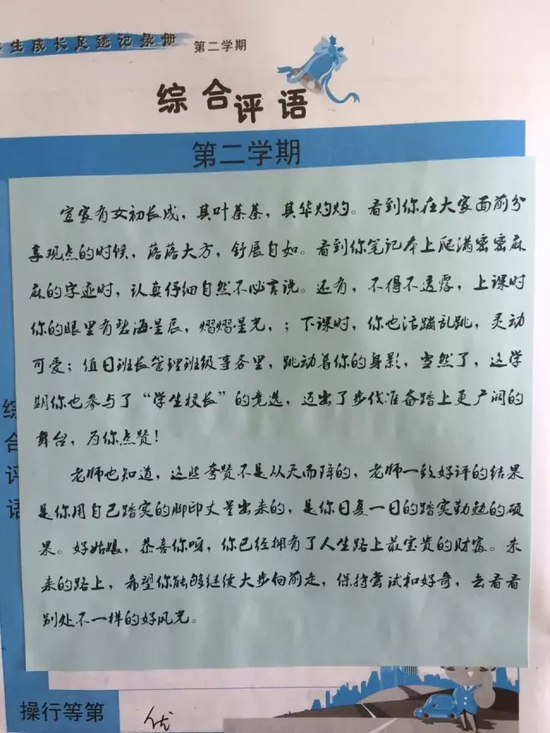 生成长足迹记录册 第二学期
综合评语
第二学期
宣家有女初长成，其叶蓁蓁，其华灼灼。看到你在大家面前分
享观点的时候，落落大方，舒展自如。看到你笔记本上爬满密密麻
麻的字迹时，认真仔细自然不必言说。还有，不得不透露，上课时
你的眼里有碧海星辰，熠熠星光，；下课时，你也活蹦乱跳，灵动
可爱；值日班长管理班级事务里，跳动着你的身影，当然了，这学
期你也参与了“学生校长”的竞选，迈出了步伐准备踏上更广阔的
舞台，为你点赞！
老师也知道，这些夸赞不是从天而降的，老师一致好评的结果
是你用自己踏实的脚印丈量出来的，是你日复一日的踏实勤勉的硕
果。好姑娘，恭喜你呀，你已经拥有了人生路上最宝贵的财富。未
来的路上，希望你能够继续大步向前走，保持尝试和好奇，去看看
别处不一样的好风光。
综合评语
操行等第 优